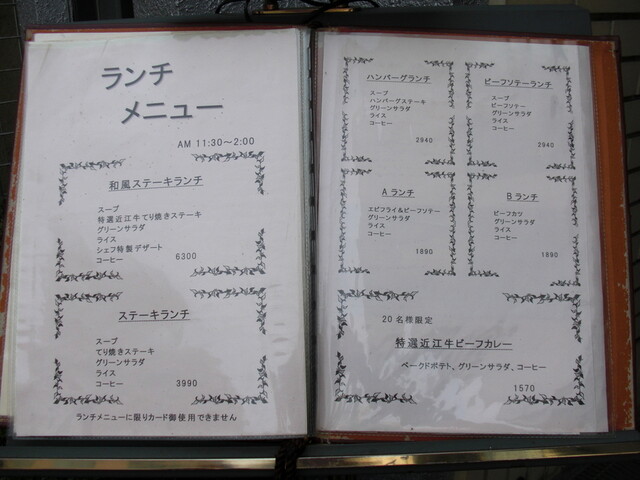 ランチ
メニュー
AM 11:30～2:00
和風ステーキランチ
スープ
特選近江牛てり焼きステーキ
グリーンサラダ
ライス
シェフ特製デザート
コーヒー 6300
ステーキランチ
スープ
てり焼きステーキ
グリーンサラダ
ライス
コーヒー 3990
ランチメニューに限りカード御使用できません
ハンバーグランチ
スープ
ハンバーグステーキ
グリーンサラダ
ライス
コーヒー
2940
ビーフソテーランチ
スープ
ビーフソテー
グリーンサラダ
ライス
コーヒー
2940
Aランチ
エビフライ&ビーフソテー
グリーンサラダ
ライス
コーヒー
1890
Bランチ
ビーフカツ
グリーンサラダ
ライス
コーヒー
1890
20名様限定
特選近江牛ビーフカレー
ベークドポテト、グリーンサラダ、コーヒー
1570